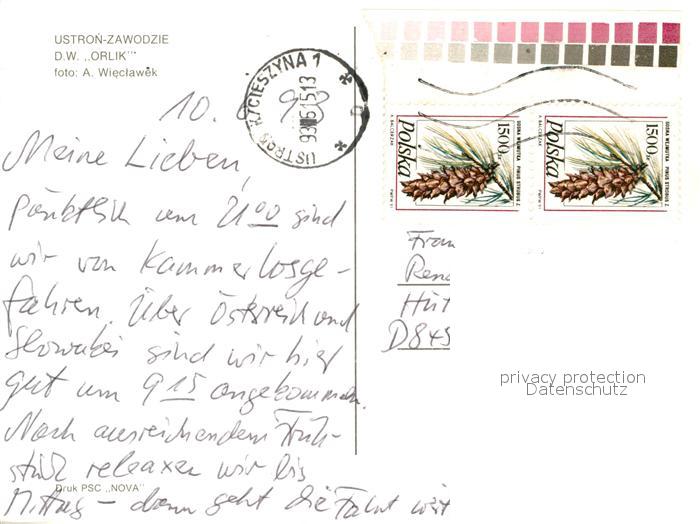 USTROŃ-ZAWODZIE
D.W. „ORLIK”
foto: A. Więcławek
USTROŃ K/CIESZYNA 1
10.
Meine Lieben,
pünktlich um 21⁰⁰ sind
wir von Kammer losge-
fahren. Über Österreich und
Slowakei sind wir hier
gut um 9¹⁵ angekommen.
Nach ausreichendem Früh-
stück relaxen wir bis
Mittag – dann geht die Fahrt weit
Druk PSC „NOVA”
1500 zł
Polska
SOSNA WEJMUTKA PINUS STROBUS Z.
1500 zł
Polska
SOSNA WEJMUTKA PINUS STROBUS Z.
Frau
Ren
Hüt
D845
privacy protection
Datenschutz